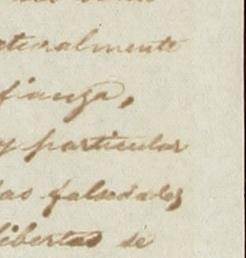 naturalmente
fianza,
y particular
las falsedades
libertad de